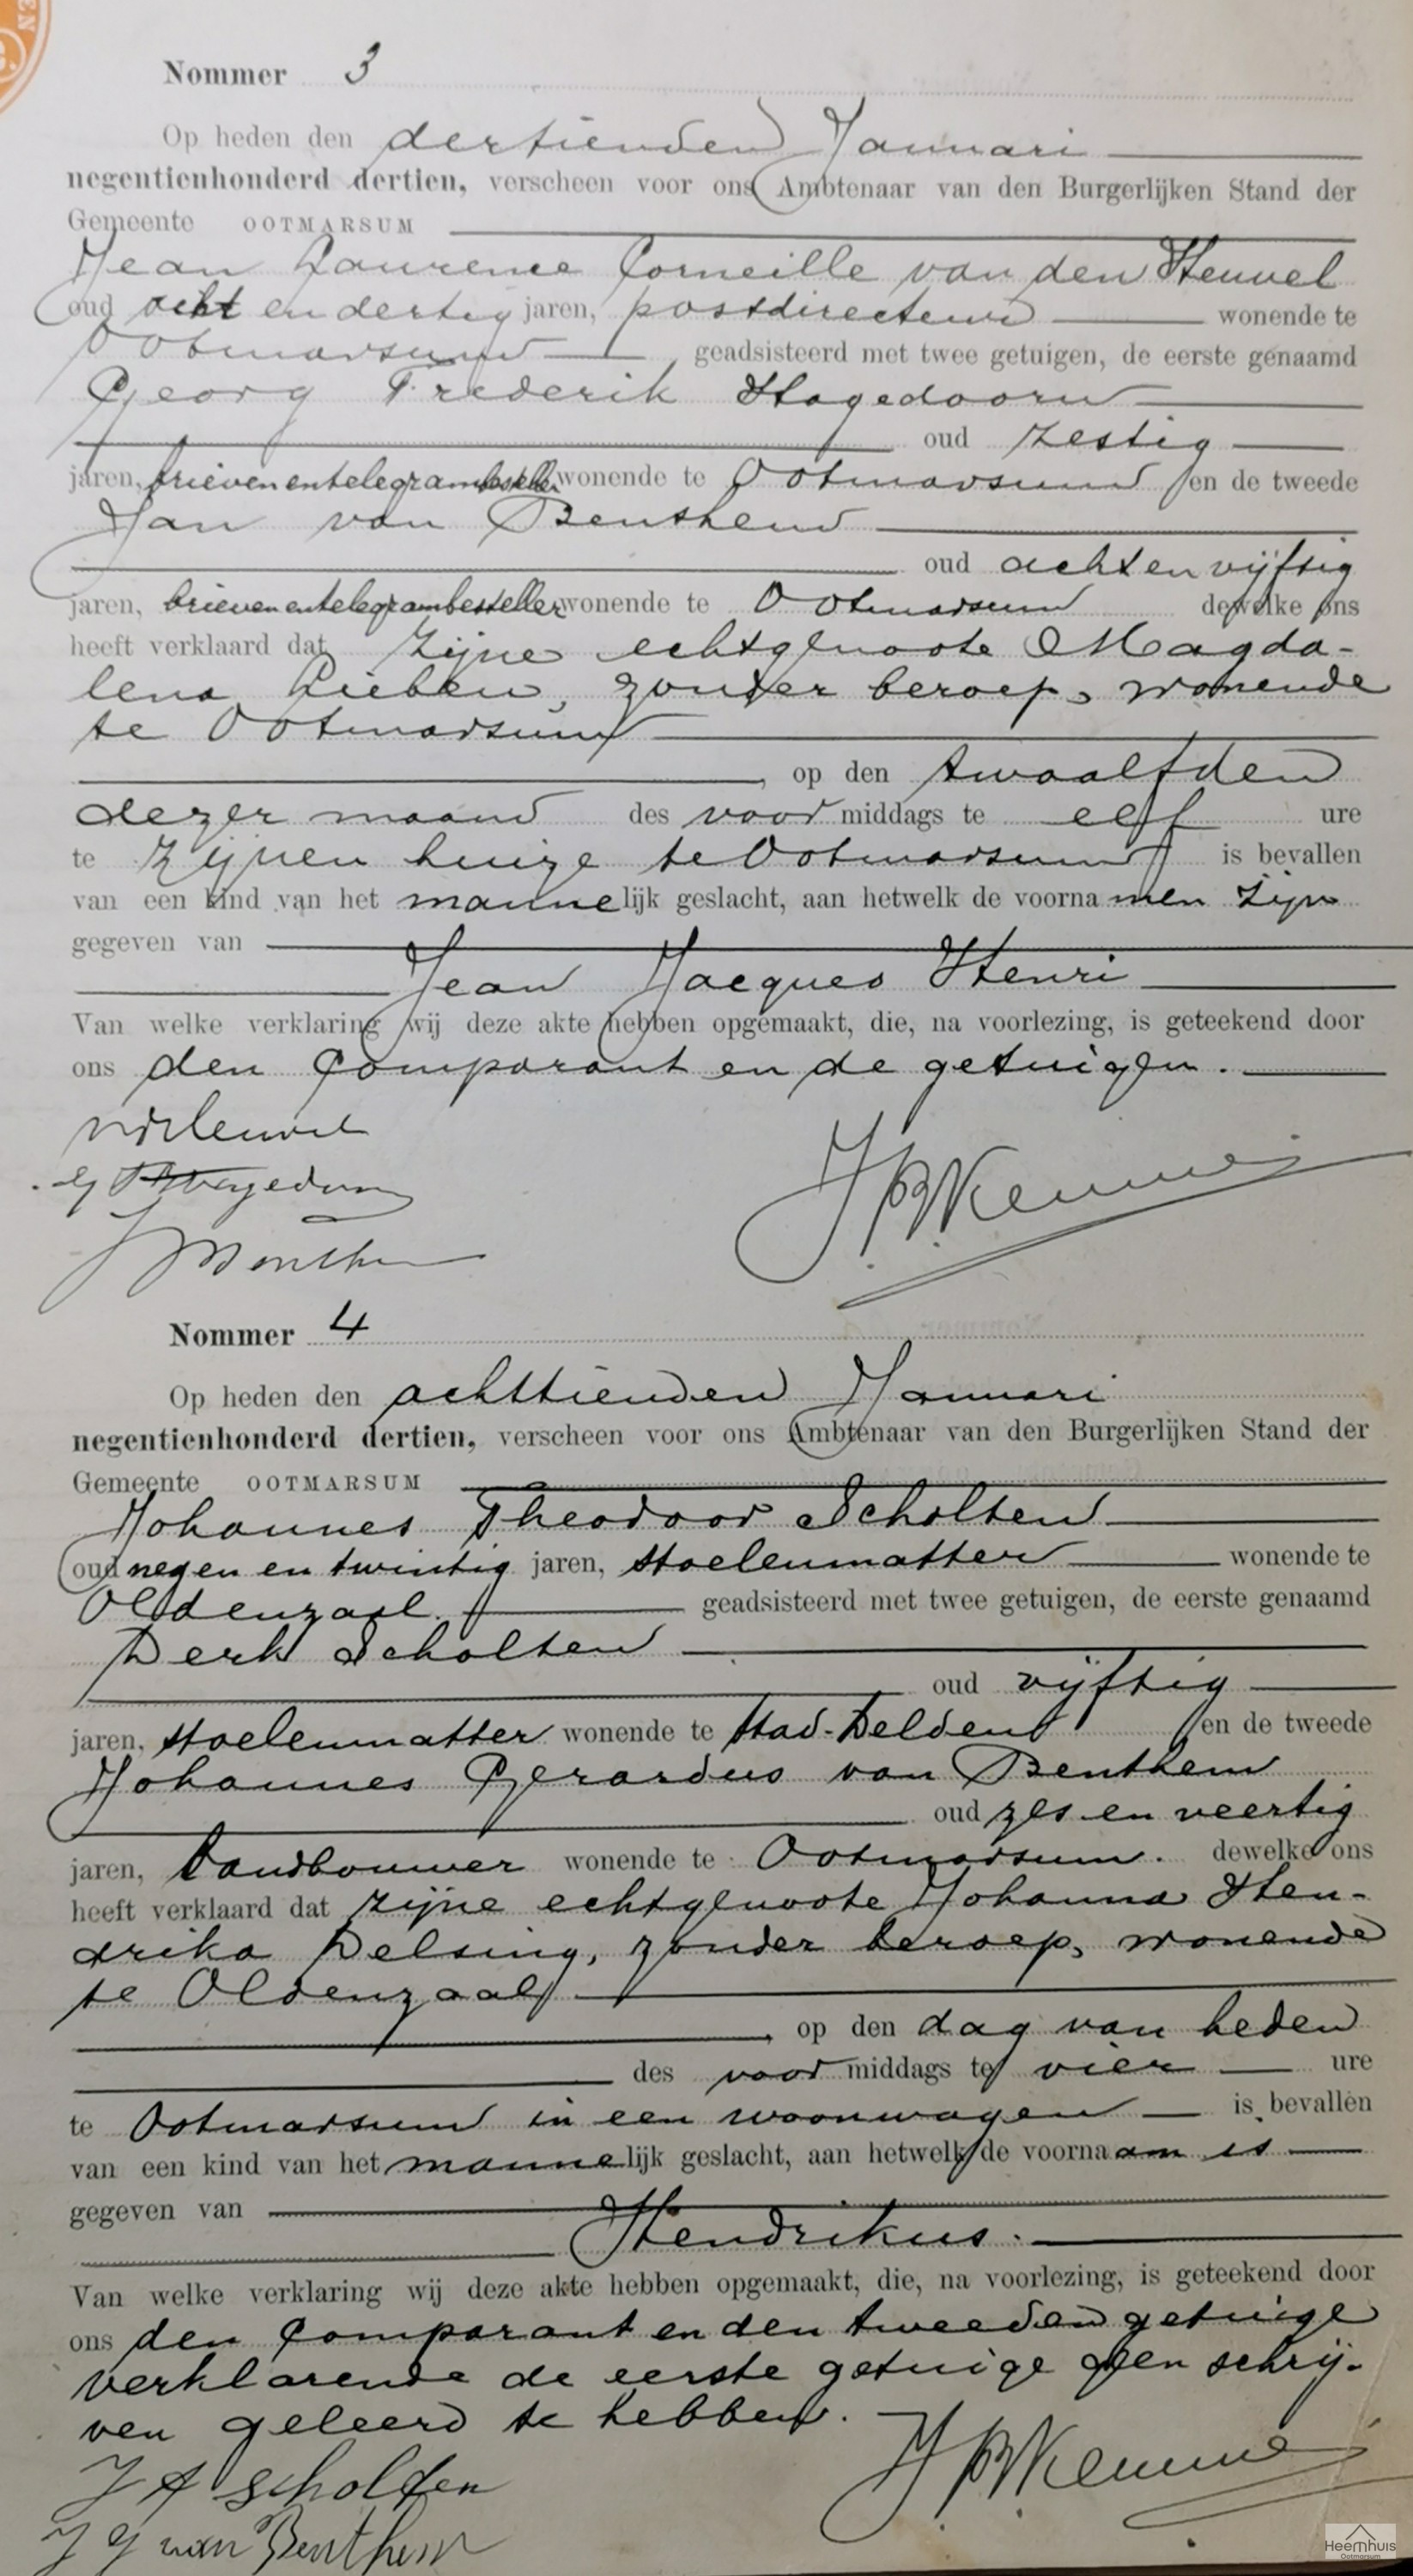 Nommer 3
Op heden den dertienden Januari
negentienhonderd dertien, verscheen voor ons Ambtenaar van den Burgerlijken Stand der
Gemeente OOTMARSUM
Jean Laurence Corneille van den Heuvel
oud acht en dertig jaren, postdirecteur wonende te
Ootmarsum geadsisteerd met twee getuigen, de eerste genaamd
Georg Frederik Hagedoorn
oud zestig
jaren, brievenentelegrambesteller wonende te Ootmarsum en de tweede
Jan van Benthem
oud acht en vijftig
jaren, brievenentelegrambesteller wonende te Ootmarsum dewelke ons
heeft verklaard dat zijne echtgenoote Magda-
lena Lieben, zonder beroep, wonende
te Ootmarsum
, op den twaalfden
dezer maand des voormiddags te elf ure
te zijnen huize te Ootmarsum is bevallen
van een kind van het mannelijk geslacht, aan hetwelk de voornamen zijn
gegeven van
Jean Jacques Henri
Van welke verklaring wij deze akte hebben opgemaakt, die, na voorlezing, is geteekend door
ons den Comparant en de getuigen.
vdHeuvel
Nommer 4
Op heden den achttienden Januari
negentienhonderd dertien, verscheen voor ons Ambtenaar van den Burgerlijken Stand der
Gemeente OOTMARSUM
Johannes Theodoor Scholten
oud negen en twintig jaren, stoelenmatter wonende te
Oldenzaal. geadsisteerd met twee getuigen, de eerste genaamd
Derk Scholten
oud vijftig
jaren, stoelenmatter wonende te Stad-Delden en de tweede
Johannes Gerardus van Benthem
oud zes en veertig
jaren, Landbouwer wonende te Ootmarsum. dewelke ons
heeft verklaard dat zijne echtgenoote Johanna Hen-
drika Delsing, zonder beroep, wonende
te Oldenzaal
, op den dag van heden
des voormiddags te vier ure
te Ootmarsum in een woonwagen is bevallen
van een kind van het mannelijk geslacht, aan hetwelk de voornaam is
gegeven van
Hendrikus.
Van welke verklaring wij deze akte hebben opgemaakt, die, na voorlezing, is geteekend door
ons den Comparant en den tweeden getuige
verklarende de eerste getuige geen schrij-
ven geleerd te hebben.
J T Scholten
J G van Benthem
Heemhuis
Ootmarsum